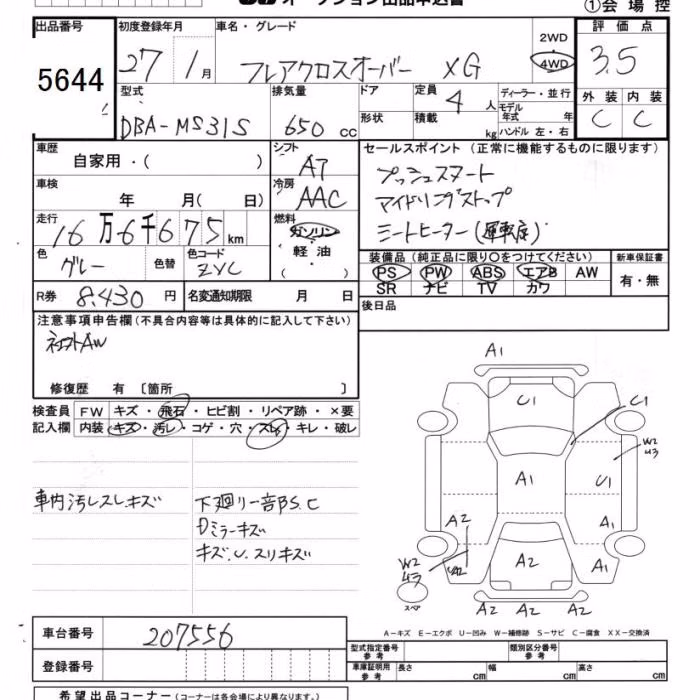 オークション出品申込書
①会場控
出品番号 初度登録年月 車名・グレード 評価点
5644 27 1月 フレアクロスオーバー XG 2WD 4WD 3.5
型式 排気量 ドア 定員 4人 ディーラー・並行 外装 内装
DBA-MS31S 650 cc 形状 積載 kg モデル年式 年 ハンドル 左・右 C C
車歴 シフト セールスポイント (正常に機能するものに限ります)
自家用・( ) A7 プッシュスタート
車検 冷房 アイドリングストップ
年 月( 日) AAC シートヒーター(運転席)
走行 16万6千675km 燃料 ガソリン
軽油
( )
色 グレー 色替 色コード ZYC
装備品 (純正品に限り○をつけてください) 新車保証書
PS PW ABS エアB AW 有・無
SR ナビ TV カワ
R券 8,430円 名変通知期限 月 日 後日品
注意事項申告欄 (不具合内容等は具体的に記入して下さい)
修復歴 有 〔箇所 〕
検査員 FW キズ・飛石・ヒビ割・リペア跡・×要
記入欄 内装 キズ・汚レ・コゲ・穴・スレ・キレ・破レ
A1
U1
W2
U3
A1 U1
A2 A1
W2 U2 A2 A1
スペア
A2 A2 A2
車内汚レスレキズ 下廻リ一部S.C
Dミラーキズ
キズ.U.スリキズ
A-キズ E-エクボ U-凹み W-補修跡 S-サビ C-腐食 XX-交換済
車台番号 207556
型式指定番号 参考 類別区分番号 参考
登録番号 車庫証明用 参考 長さ cm 幅 cm 高さ cm
希望出品コーナー (コーナーは各会場により異なります)